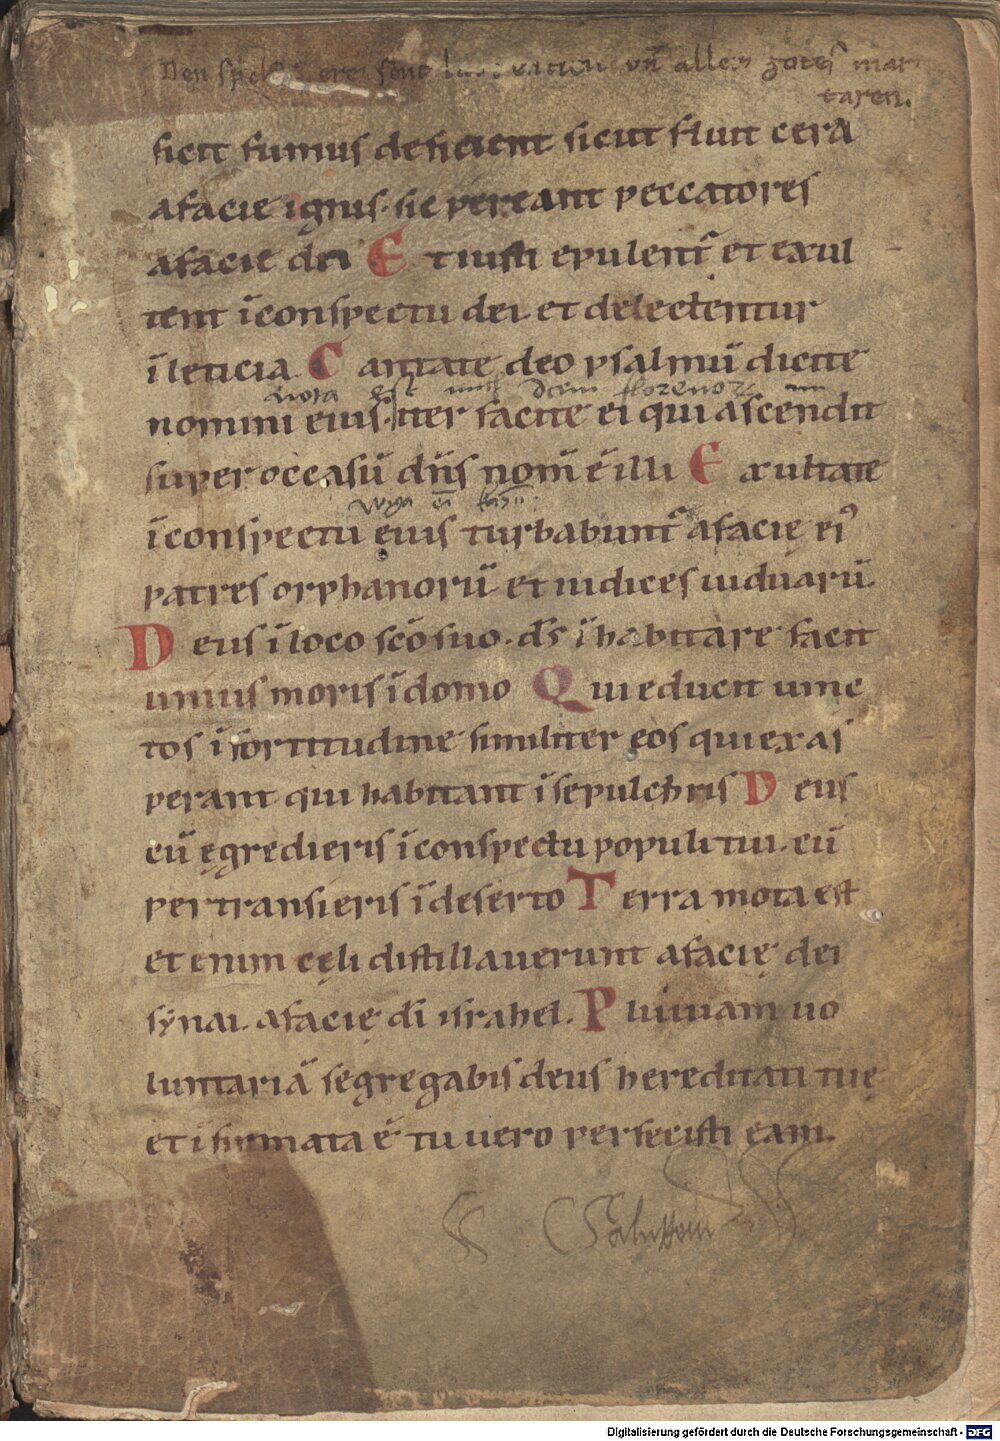 Den sant vn̄ allen gotes mar
taren.
sicut fumus deficient sicut fluit cera
afacie ignis· sic pereant peccatores
afacie dei Et iusti epulent᷑ et exul
tent īconspectu dei· et delectentur
īleticia. Cantate deo psalmū dicite
nomini eius· iter facite ei qui ascendit
super occasū dn̄s nom̄ ē illi Exultate
īconspectu eius turbabunt᷑ afacię ei᾽
patres orphanorū et iudices uiduarū.
Deus īloco sc̄o suo· ds̄ īhabitare facit
unius moris īdomo Qui educit uinc
tos īfortitudine similiter eos qui exas
perant qui habitant īsepulchris Deus
cū ęgredieris īconspectu populi tui· cū
pertransieris īdeserto Terra mota est
et enim cęli distillauerunt afacię dei
synai· afacię dī israhel. Pluuiam uo
luntariā segregabis deus hereditati tuę
et īfirmata ē tu uero perfecisti eam.